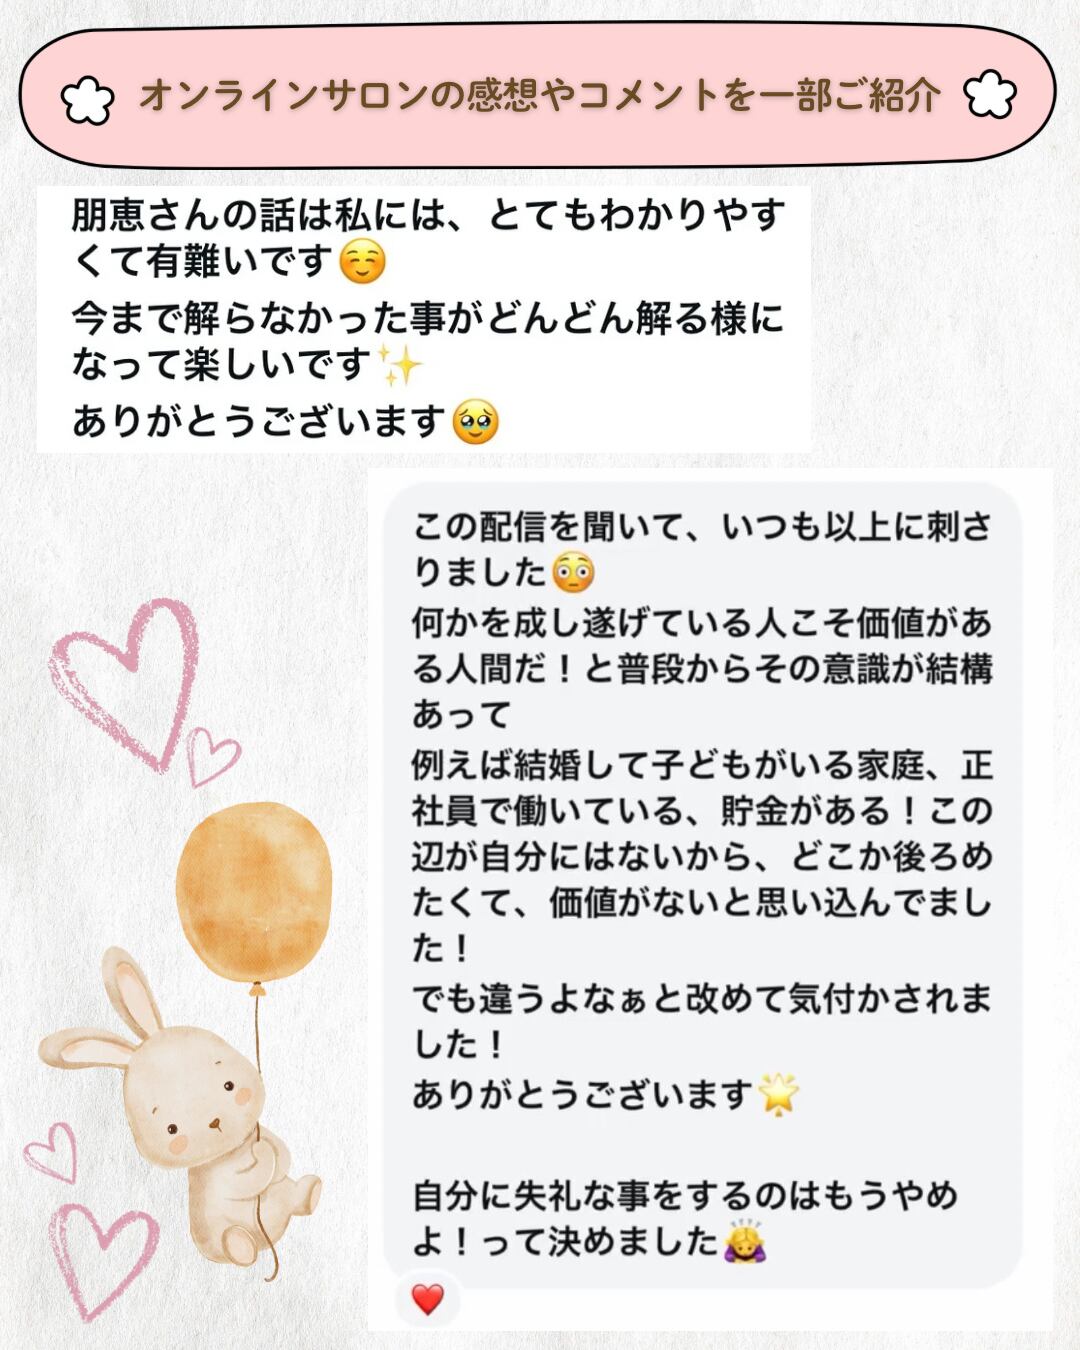 オンラインサロンの感想やコメントを一部ご紹介
朋恵さんの話は私には、とてもわかりやす
くて有難いです☺️
今まで解らなかった事がどんどん解る様に
なって楽しいです✨
ありがとうございます🥹
この配信を聞いて、いつも以上に刺さ
りました😳
何かを成し遂げている人こそ価値があ
る人間だ！と普段からその意識が結構
あって
例えば結婚して子どもがいる家庭、正
社員で働いている、貯金がある！この
辺が自分にはないから、どこか後ろめ
たくて、価値がないと思い込んでまし
た！
でも違うよなぁと改めて気付かされま
した！
ありがとうございます🌟
自分に失礼な事をするのはもうやめ
よ！って決めました🙇‍♀️
❤️